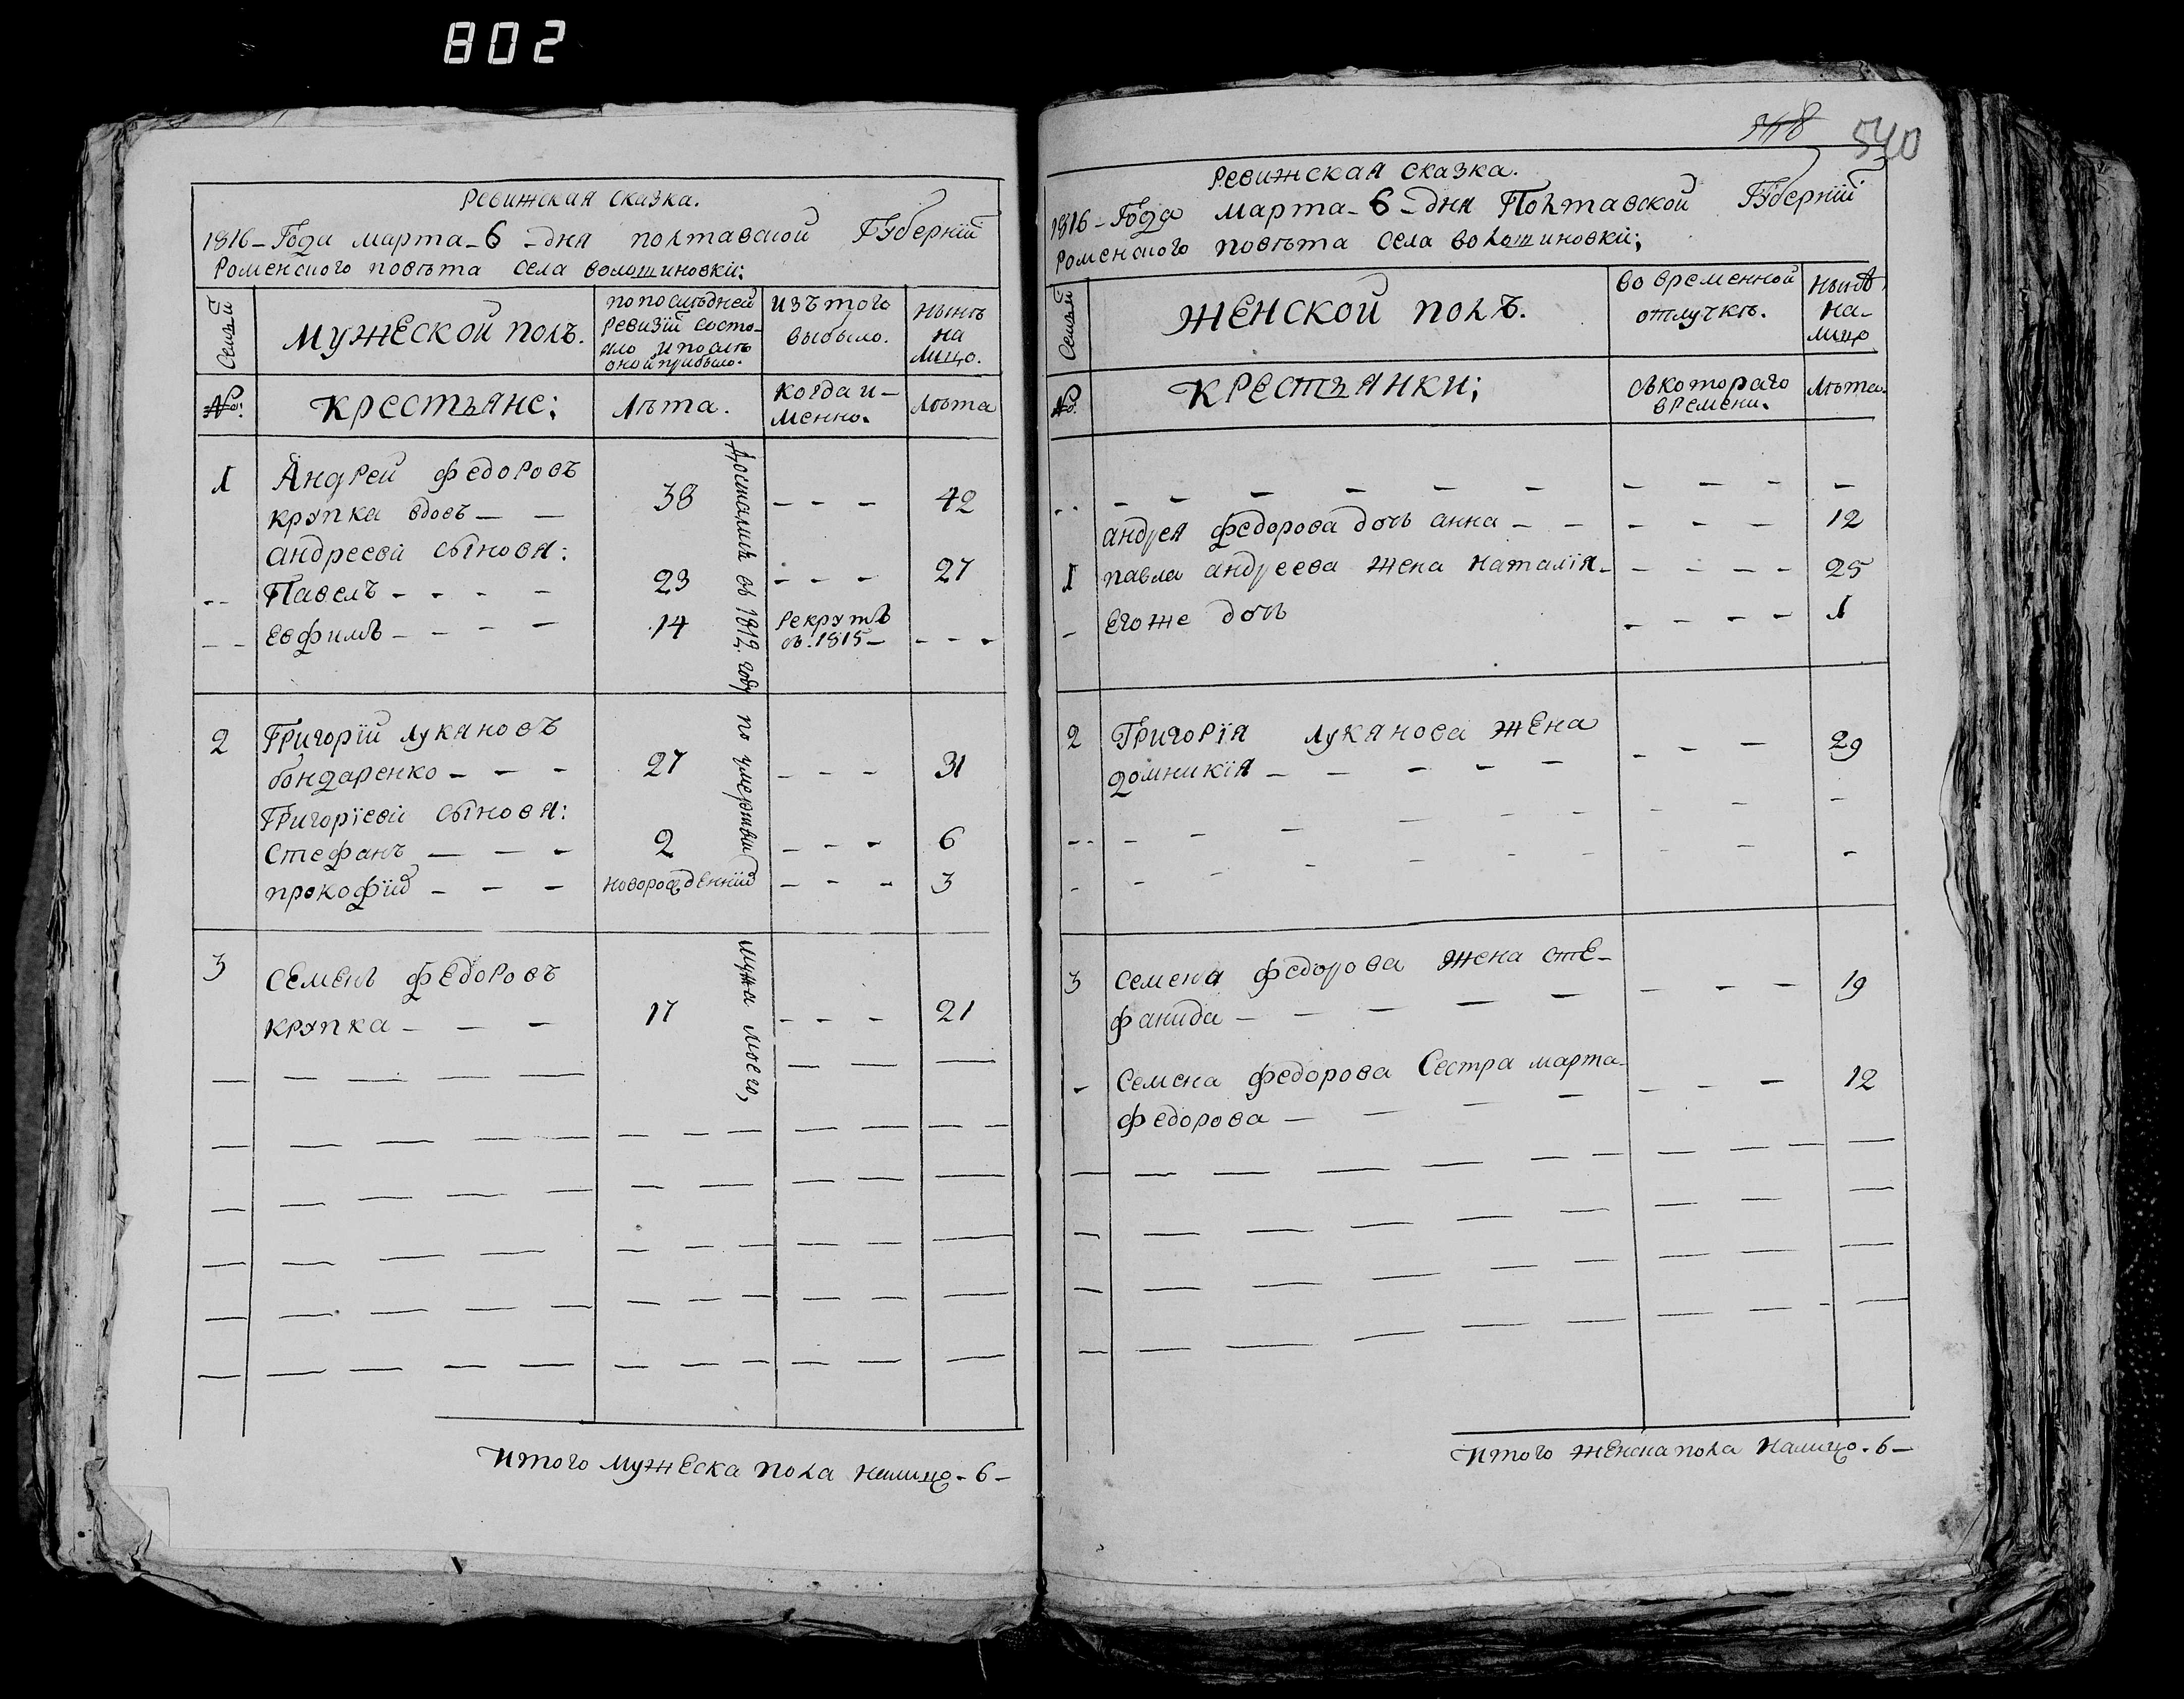 802
Ревижская сказка.
1816 - Года марта - 6 - дня полтавской Губерніи
Роменского повѣта села волошиновки;
Семьи
Мужеской полъ.
по послѣдней
ревизіи состо-
яло и послѣ
оной прибыло.
изъ того
выбыло.
нынѣ
на
лицо.
№:
Крестьяне;
Лѣта.
Когда и-
менно.
Лѣта
1
Андрей федоровъ
крупка вдовъ — —
38
- - -
42
андреевы сыновя:
-- Павелъ - - - -
23
- - -
27
-- Евфимъ - - - -
14
Рекрутъ
въ 1815 -
- - -
Досталис въ 1812. году по умертвии мужа моего,
2
Григорій Лукяновъ
бондаренко - - -
27
- - -
31
Григоріеви сыновя:
Стефанъ — — -
2
- - -
6
прокофій - - -
новорожденній
- - -
3
3
Семенъ федоровъ
крупка - — -
17
- - -
21
Итого Мужеска пола налицо - 6 -
540
Ревижская сказка.
1816 - Года марта - 6 - дня Полтавской Губерніи
Роменского повѣта села волошиновки;
Семьи
Женской полъ.
во временной
отлучкѣ.
нынѣ
на-
лицо
№:
Крестьянки;
съ котораго
времени.
Лѣта.
андрея федорова дочь анна - - - - -
12
1
павла андреева жена наталія - - - - -
25
- Егоже дочь
- - - -
1
2
Григорія лукянова жена
домникія - - - - -
- - -
29
3
Семена федорова жена сте-
фанида - - - - -
- - -
19
- Семена федорова Сестра марта
федорова - - - -
- - -
12
Итого женска пола налицо - 6 -